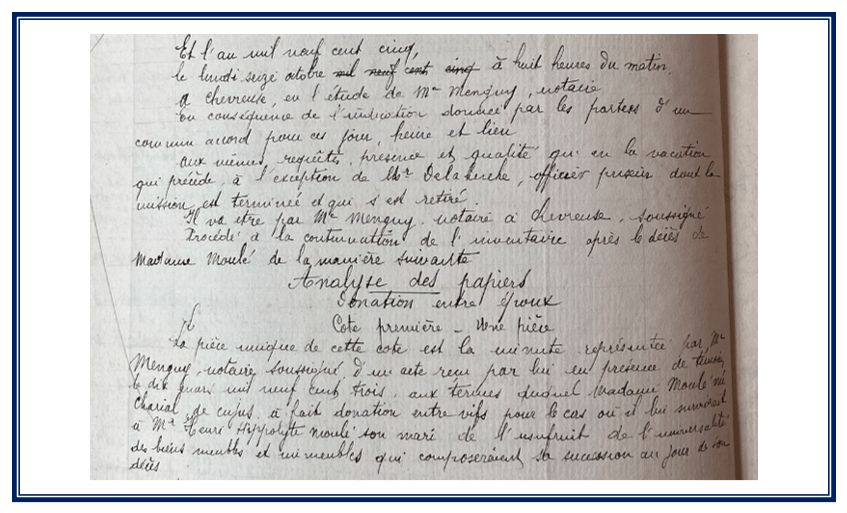 Et l'an mil neuf cent cinq,
le lundi seize octobre mil neuf cent cinq à huit heures du matin,
A Chevreuse, en l'étude de Me Menguy, notaire
En conséquence de l'indication donnée par les parties d'un
commun accord pour ces jour, heure et lieu
Aux mêmes, requêtes, présence et qualité qu'en la vacation
qui précède, à l'exception de Mr Delaherche, officier priseur dont la
mission est terminée et qui s'est retiré.
Il va être par Me Menguy, notaire à Chevreuse, soussigné
Procédé à la continuation de l'inventaire après le décès de
Madame Moulé de la manière suivante
Analyse des papiers
Donation entre époux
Cote première - Une pièce
La pièce unique de cette cote est la minute représentée par Me
Menguy, notaire soussigné, d'un acte reçu par lui en présence de témoins,
le dix mars mil neuf cent trois, aux termes duquel Madame Moulé née
Charial, de cujus, a fait donation entre vifs pour le cas où il lui survivrait
à Mr Henri Hippolyte Moulé son mari de l'usufruit de l'universalité
des biens meubles et immeubles qui composeraient sa succession au jour de son
décès